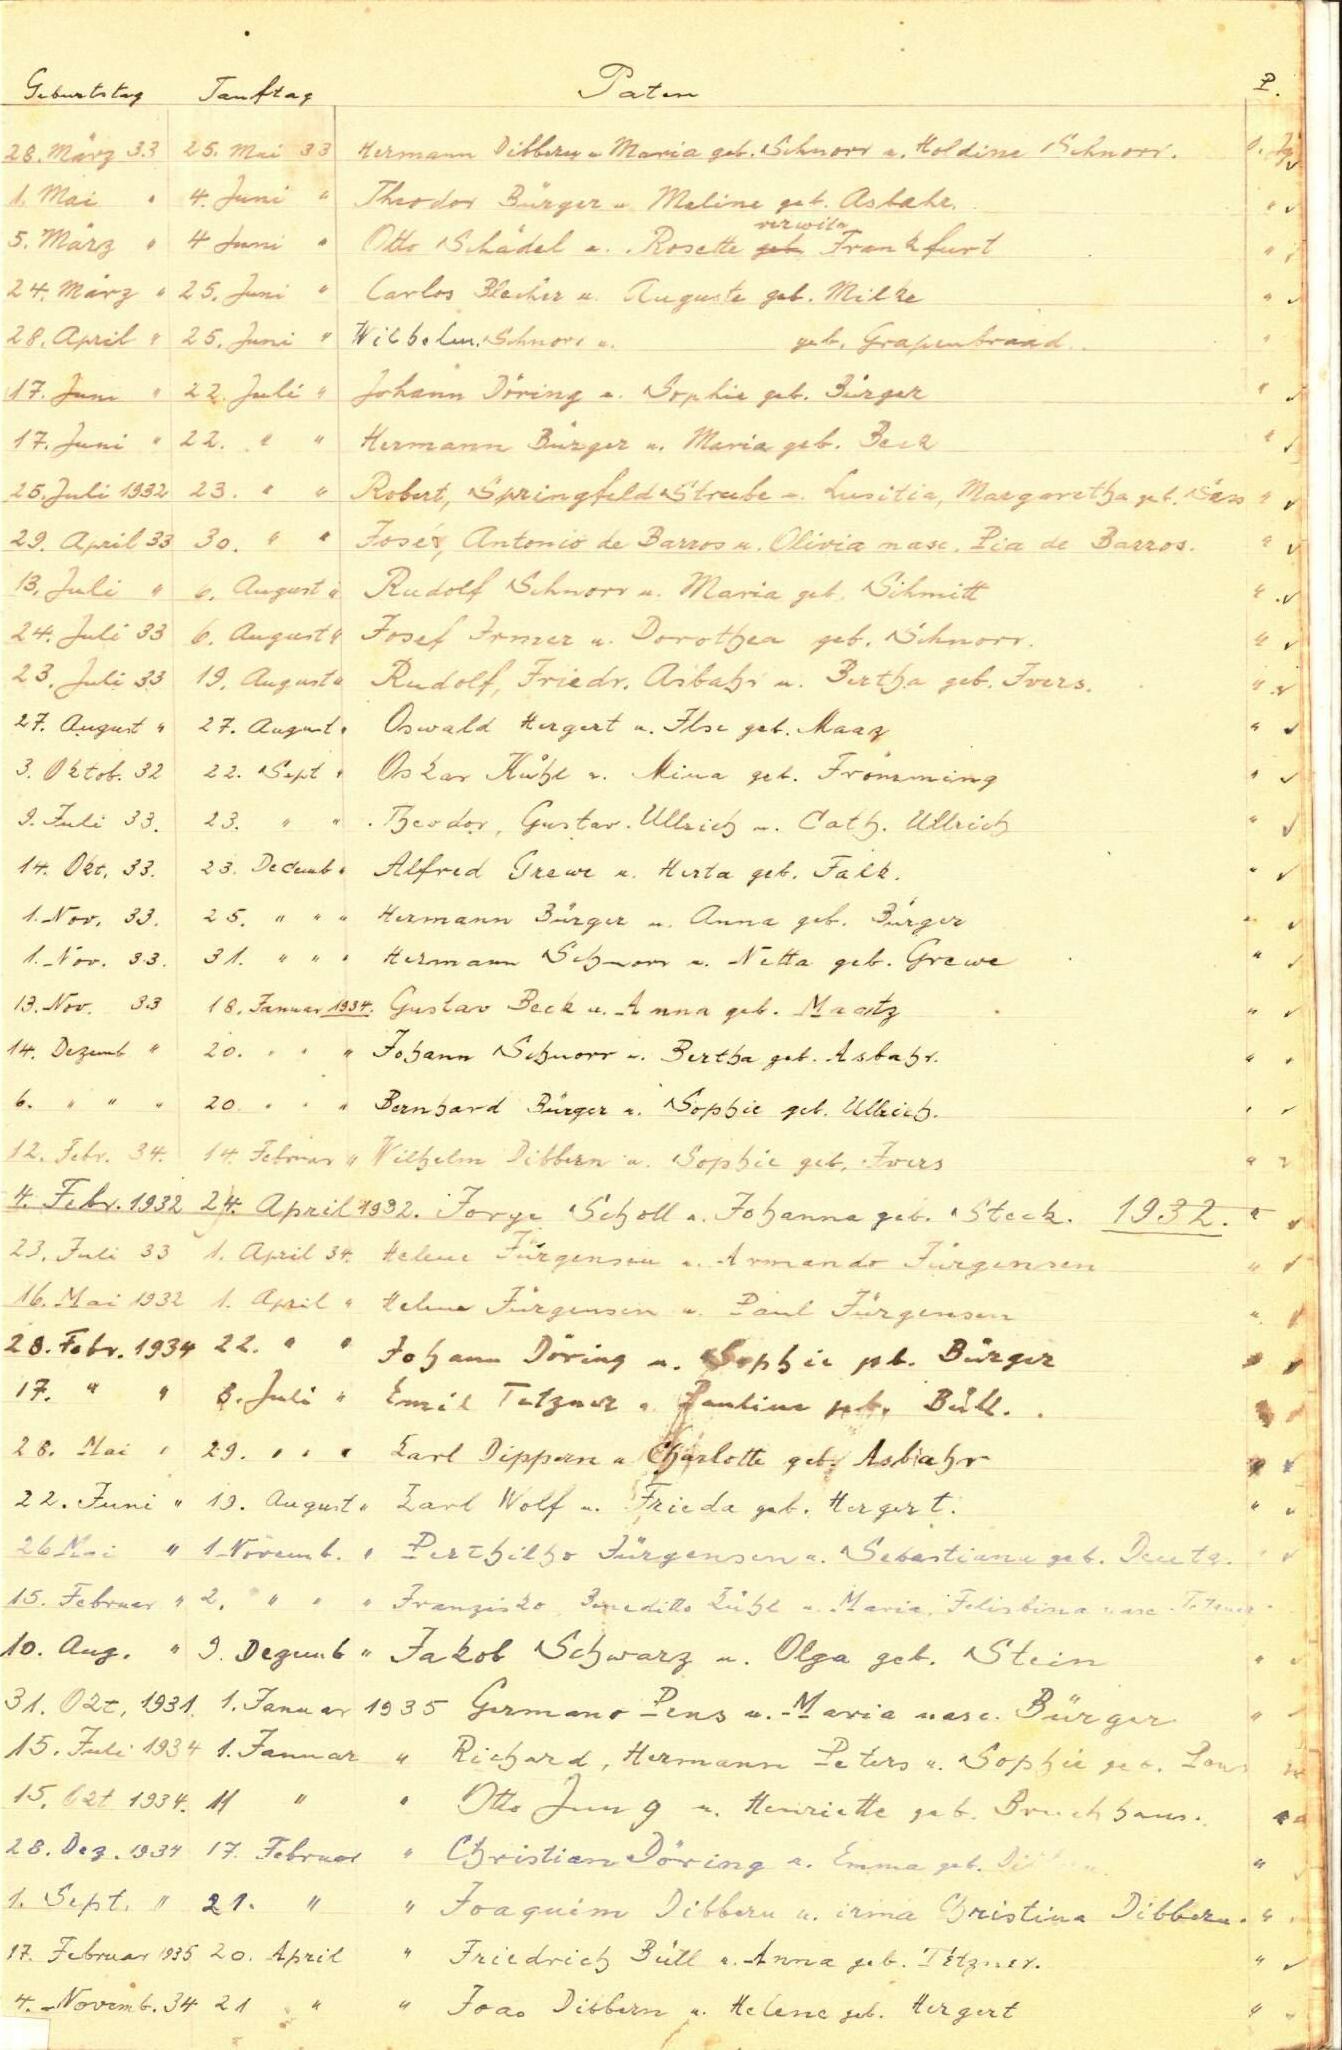 Geburtstag Tauftag Paten P.
28. März 33 25. Mai 33 Hermann Dibbern u Maria geb. Schnorr u. Holdine Schnorr.
1. Mai " 4. Juni " Theodor Bürger u Meline geb. Asbahr.
verwitw
5. März " 4 Juni " Otto Schädel u. Rosette geb. Frankfurt "
24. März " 25. Juni " Carlos Blecher u. Auguste geb. Milke "
28. April " 25. Juni " Wilhelm Schnorr u. geb. Grapenbrand. "
17. Juni " 22. Juli " Johann Döring u. Sophie geb. Bürger "
17. Juni " 22. " " Hermann Bürger u. Maria geb. Beck "
25. Juli 1932 23. " " Robert, Springfeld Strube u. Lusitia, Margaretha geb. "
29. April 33 30. " " José, Antonio de Barros u. Olivia nasc. Pia de Barros. "
13. Juli " 6. August " Rudolf Schnorr u. Maria geb. Schmitt "
24. Juli 33 6. August " Josef Irmer u. Dorothea geb. Schnorr. "
23. Juli 33 19. August " Rudolf, Friedr. Asbahr u. Bertha geb. Ivers. "
27. August " 27. August " Oswald Hergert u. Ilse geb. Maaz "
3. Oktob. 32 22. Sept " Oskar Kühl u. Mina geb. Frömming "
9. Juli 33. 23. " " Theodor, Gustav. Ullrich u. Cath. Ullrich "
14. Okt. 33. 23. Decemb " Alfred Grewe u. Herta geb. Falk. "
1. Nov. 33. 25. " " " Hermann Bürger u. Anna geb. Bürger "
1. Nov. 33. 31. " " " Hermann Schnorr u. Netta geb. Grewe "
13. Nov. 33 18. Januar 1934. Gustav Beck u. Anna geb. Maatz "
14. Dezemb " 20. " " " Johann Schnorr u. Bertha geb. Asbahr. "
6. " " " 20. " " " Bernhard Bürger u. Sophie geb. Ullrich. "
12. Febr. 34. 14. Februar " Wilhelm Dibbern u. Sophie geb. Ivers "
4. Febr. 1932 24. April 1932. Jorge Scholl u. Johanna geb. Steck. 1932. "
23. Juli 33 1. April 34. Helene Jürgensen u. Armando Jürgensen "
16. Mai 1932 1. April " Helene Jürgensen u. Paul Jürgensen "
28. Febr. 1934 22. " " Johann Döring u. Sophie geb. Bürger "
17. " " 8. Juli " Emil Tetzner u. Pauline geb. Büll.
28. Mai " 29. " " " Karl Dippern u Charlotte geb. Asbahr "
22. Juni " 19. August " Karl Wolf u. Frieda geb. Hergert. "
26 Mai " 1 Novemb. " Jürgensen u. Sebastiana geb. "
15. Februar " 2. " " " Franzisko Beneditto Kühl u. Maria, Felisbina nasc. Tetzner
10. Aug. " 9. Dezemb " Jakob Schwarz u. Olga geb. Stein "
31. Okt. 1931. 1. Januar 1935 Germano Pens u. Maria nasc. Bürger "
15. Juli 1934 1. Januar " Richard, Hermann Peters u. Sophie geb.
15. Okt 1934. 11 " " Otto Jung u. Henriette geb. Bruchhaus.
28. Dez. 1934 17. Februar " Christian Döring u. Emma geb. "
1. Sept. " 21. " " Joaquim Dibbern u. irma Christina Dibbern. "
17. Februar 1935 20. April " Friedrich Büll u. Anna geb. Tetzner. "
4. Novemb. 34 21 " " Joao Dibbern u. Helene geb. Hergert "